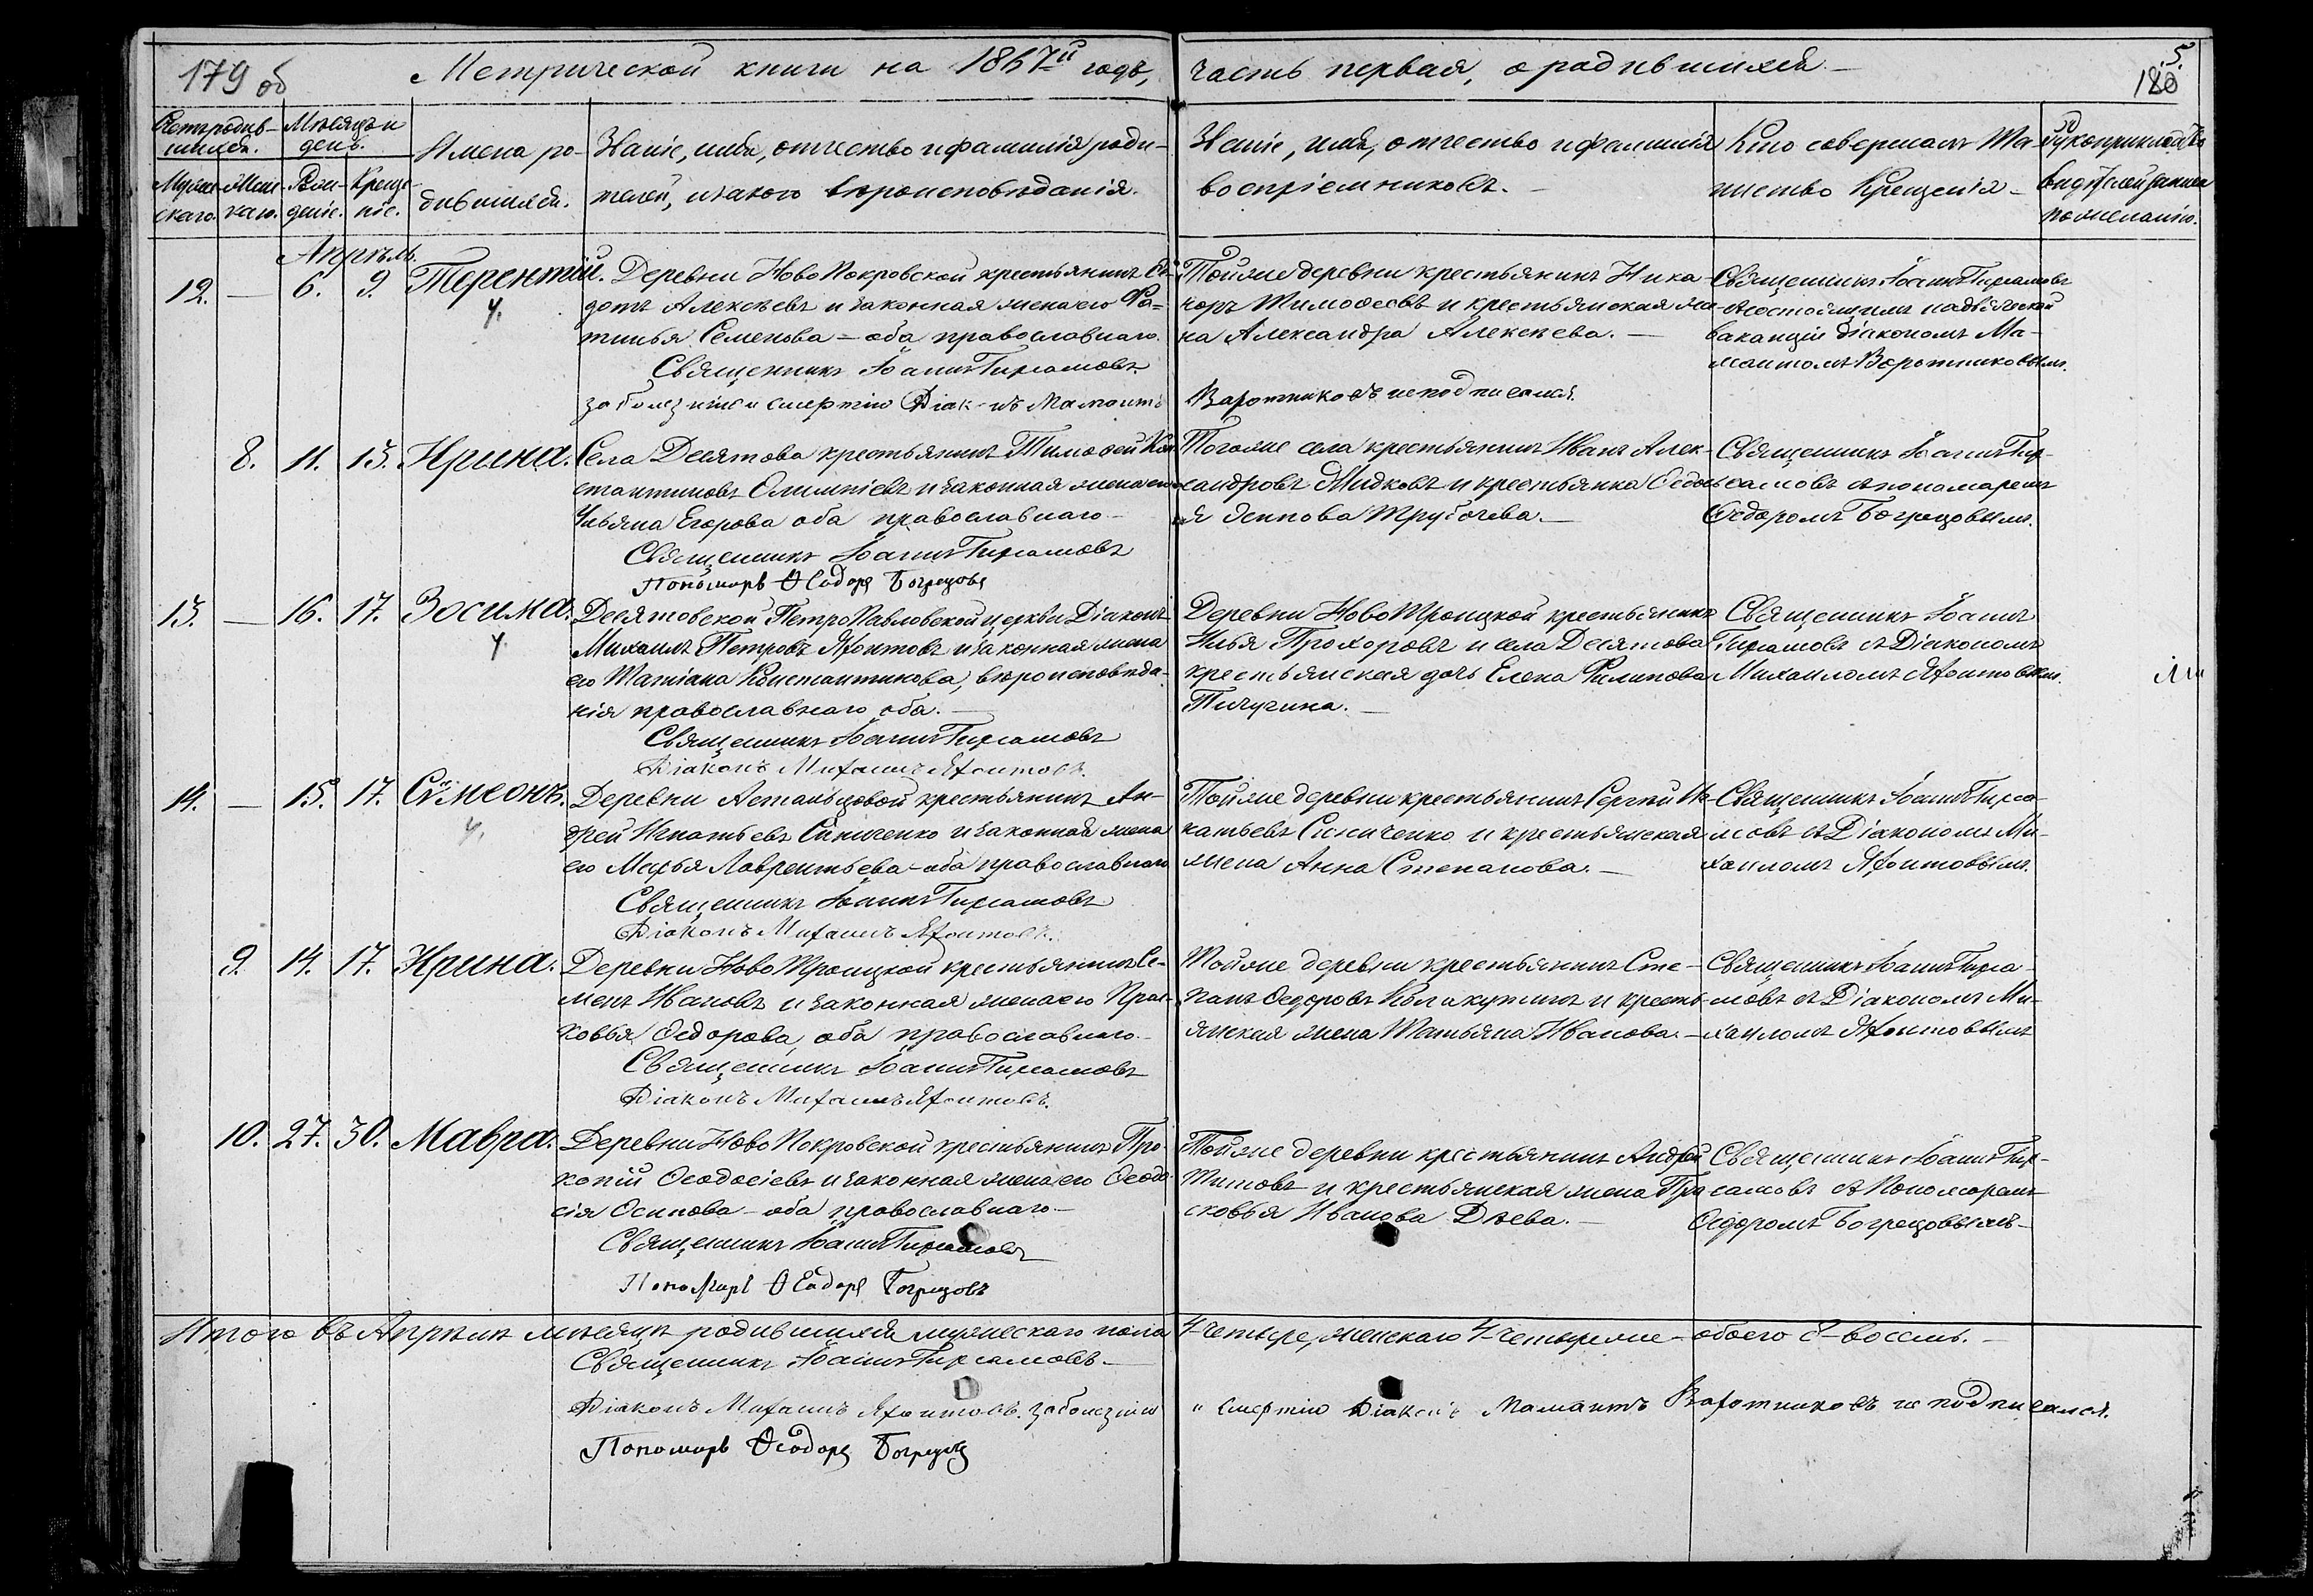 179 об
Метрической книги на 1867й годъ, часть первая, о родившихся.
5.
180
Счетъ родив-
шихся.
Мужес-
скаго.
Женс-
каго.
Мѣсяцъ и
день.
Рож-
деніе.
Креще-
ніе.
Имена ро-
дившихся.
Званіе, имя, отчество и фамилія роди-
телей, и какого вѣроисповѣданія.
Званіе, имя, отчество и фамилія
воспріемниковъ.
Кто совершалъ Та-
инство Крещенія
Рукоприкладство
свидѣтелей записи
по желанію.
Апрѣль.
12. — 6. 9. Терентій.
у.
Деревни Ново Покровской крестьянинъ Ев-
дотъ Алексѣевъ и законная жена его Фо-
тинья Семенова – оба православнаго.
Священникъ Іоаннъ Тирсамовъ
за болезнію и смертію Діаконъ Мамонтъ Воротниковъ неподписался.
Тойже деревни крестьянинъ Ника-
норъ Тимофеевъ и крестьянская же-
на Александра Алексѣева. —
Священникъ Іоаннъ Тирсамовъ
вакации діакономъ Ма-
монтомъ Воротниковымъ.
8. 11. 15. Ирина.
Села Десятова крестьянинъ Тимофей Кон-
стантиновъ Олимпіевъ и законная жена его
Ульяна Егорова оба православнаго
Священникъ Іоаннъ Тирсамовъ
Пономарь Ѳеодоръ Богрецовъ
Тогоже села крестьянинъ Иванъ Алек-
сандровъ Жидковъ и крестьянка Ѳедось-
я Осипова Трубочева. —
Священникъ Іоаннъ Тир-
самовъ съ пономаремъ
Ѳедоромъ Богрецовымъ.
13. — 16. 17. Зосима.
у.
Десятовской Петро Павловской церкви Діаконъ
Михаилъ Петровъ Яхонтовъ и законная жена
его Татіана Константинова, вѣроисповѣда-
нія православнаго оба. —
Священникъ Іоаннъ Тирсамовъ
Діаконъ Михаилъ Яхонтовъ.
Деревни Ново Троицкой крестьянинъ
Илья Прохоровъ и села Десятова
крестьянская дочь Елена Филипова
Пичугина. —
Священникъ Іоаннъ
Тирсамовъ съ Діакономъ
Михаиломъ Яхонтовымъ.
14. — 15. 17. Сѵмеонъ.
у.
Деревни Астанцовой крестьянинъ Ан-
дрей Игнатьевъ Синиченко и законная жена
его Марья Лаврентьева – оба православнаго
Священникъ Іоаннъ Тирсамовъ
Діаконъ Михаилъ Яхонтовъ.
Тойже деревни крестьянинъ Сергѣй Иг-
натьевъ Синиченко и крестьянская
жена Анна Степанова. —
Священникъ Іоаннъ Тирса-
мовъ съ Діакономъ Ми-
хаиломъ Яхонтовымъ.
9. 14. 17. Ирина.
Деревни Ново Троицкой крестьянинъ Се-
менъ Ивановъ и законная жена его Прас-
ковья Ѳедорова, оба православнаго. —
Священникъ Іоаннъ Тирсамовъ
Діаконъ Михаилъ Яхонтовъ.
Тойже деревни крестьянинъ Сте-
панъ Ѳедоровъ Колокутинъ и кресть-
янская жена Татьяна Иванова. —
Священникъ Іоаннъ Тирса-
мовъ съ Діакономъ Ми-
хаиломъ Яхонтовымъ
10. 27. 30. Мавра.
Деревни Ново Покровской крестьянинъ Про-
копій Ѳеодосіевъ и законная жена его Ѳеодо-
сія Осипова – оба православнаго —
Священникъ Іоаннъ Тирсамовъ
Пономарь Ѳеодоръ Богрецовъ
Тойже деревни крестьянинъ Андрей
Титовъ и крестьянская жена Пра-
сковья Иванова Дѣева. —
Священникъ Іоаннъ Тир-
самовъ съ Пономаремъ
Ѳедоромъ Богрецовымъ —
Итого въ Апрѣлѣ мѣсяцѣ родившихся мужескаго пола 4 четыре, женскаго 4 четыреже – обоего 8 – восемь. —
Священникъ Іоаннъ Тирсамовъ —
Діаконъ Михаилъ Яхонтовъ. за болезнію и смертію Діаконъ Мамонтъ Воротниковъ не подписался.
Пономарь Ѳеодоръ Богрецовъ